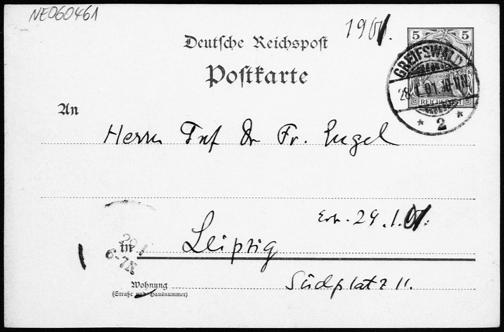 NE060461
1901.
Deutsche Reichspost
Postkarte
5 5
GREIFSWALD
28.1.01.
REICHSPOST
* 2 *
An
Herrn Prof Dr Fr. Engel
Erh. 29.1.01.
29.1
6-7
in Leipzig
Südplatz 11.
Wohnung
(Straße und Hausnummer)